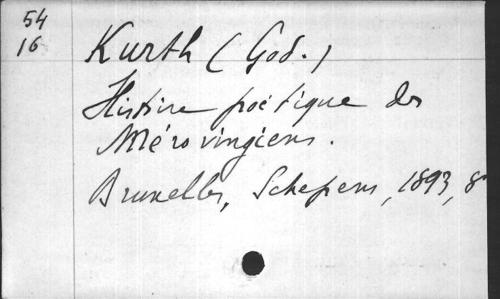 54
16
Kurth (God.)
Histoire poétique des
Mérovingiens.
Bruxelles, Schepens, 1893, 8°